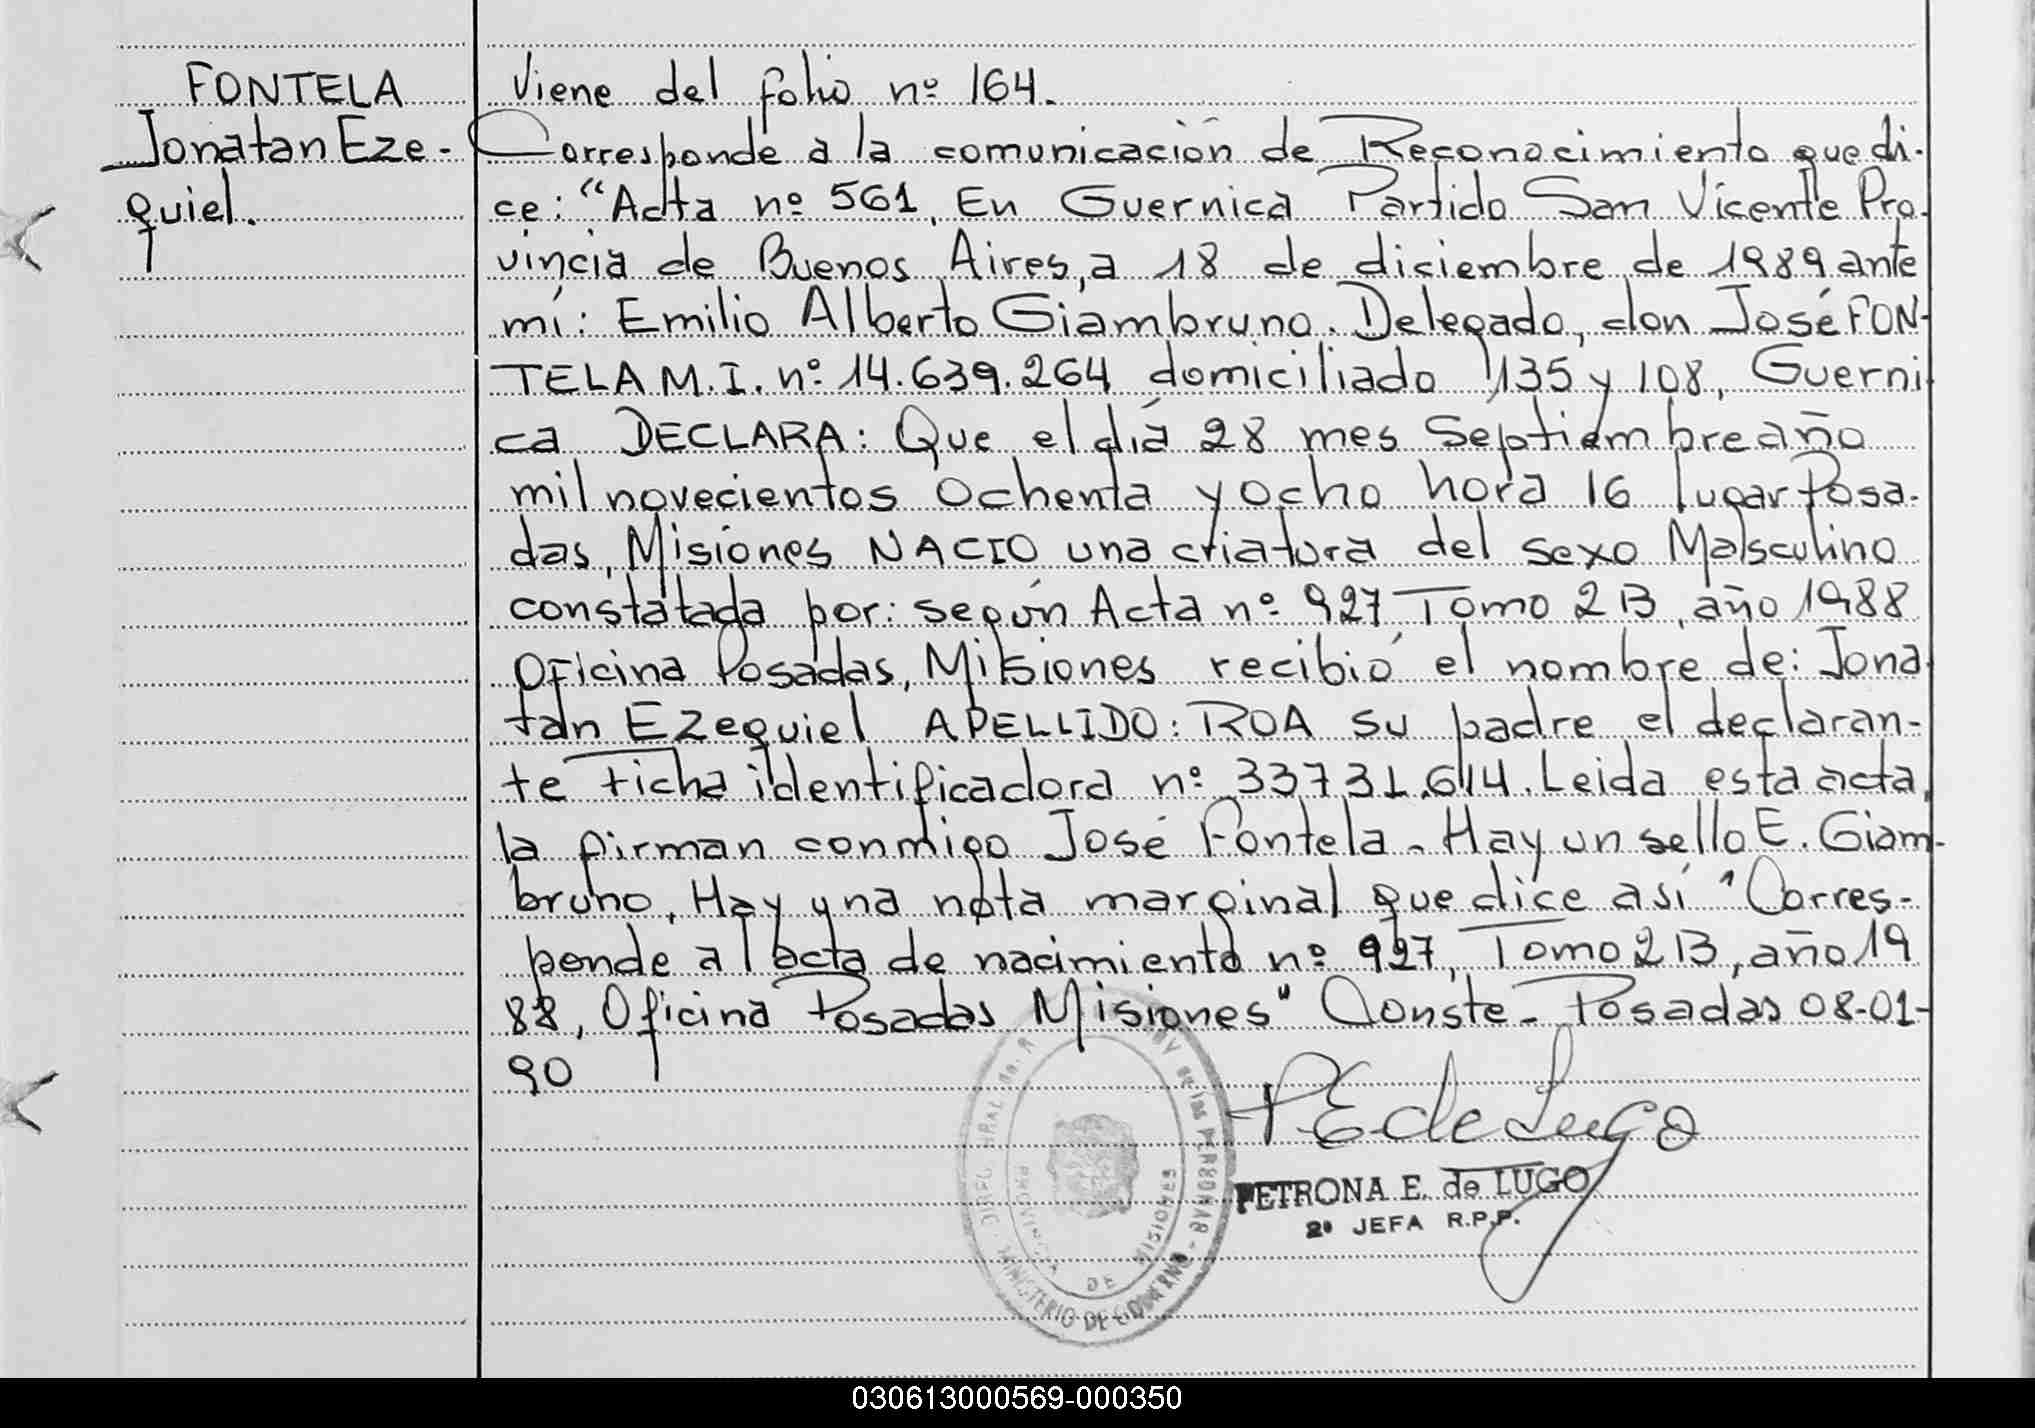 FONTELA
Jonatan Eze-
quiel.
Viene del folio nº 164.
Corresponde a la comunicación de Reconocimiento que di-
ce: "Acta nº 561, En Guernica Partido San Vicente Pro-
vincia de Buenos Aires, a 18 de diciembre de 1989 ante
mí: Emilio Alberto Giambruno. Delegado, don José FON-
TELA M.I. nº 14.639.264 domiciliado 135 y 108, Guerni
ca DECLARA: Que el día 28 mes Septiembre año
mil novecientos ochenta y ocho hora 16 lugar Posa-
das, Misiones NACIO una criatura del sexo Masculino
constatada por: según Acta nº 927 Tomo 2B, año 1988
Oficina Posadas, Misiones recibió el nombre de: Jona
tan Ezequiel APELLIDO: ROA su padre el declaran-
te Ficha identificadora nº 33731.614. Leida esta acta,
la firman conmigo José Fontela - Hay un sello E. Giam-
bruno, Hay una nota marginal que dice así "Corres-
ponde al acta de nacimiento nº 927, Tomo 2B, año 19
88, Oficina Posadas Misiones" Conste - Posadas 08-01-
90
PE de Lugo
PETRONA E. de LUGO
2º JEFA R.P.P.
PROVINCIA DE MISIONES
MINISTERIO DE GOBIERNO
de las PERSONAS
030613000569-000350